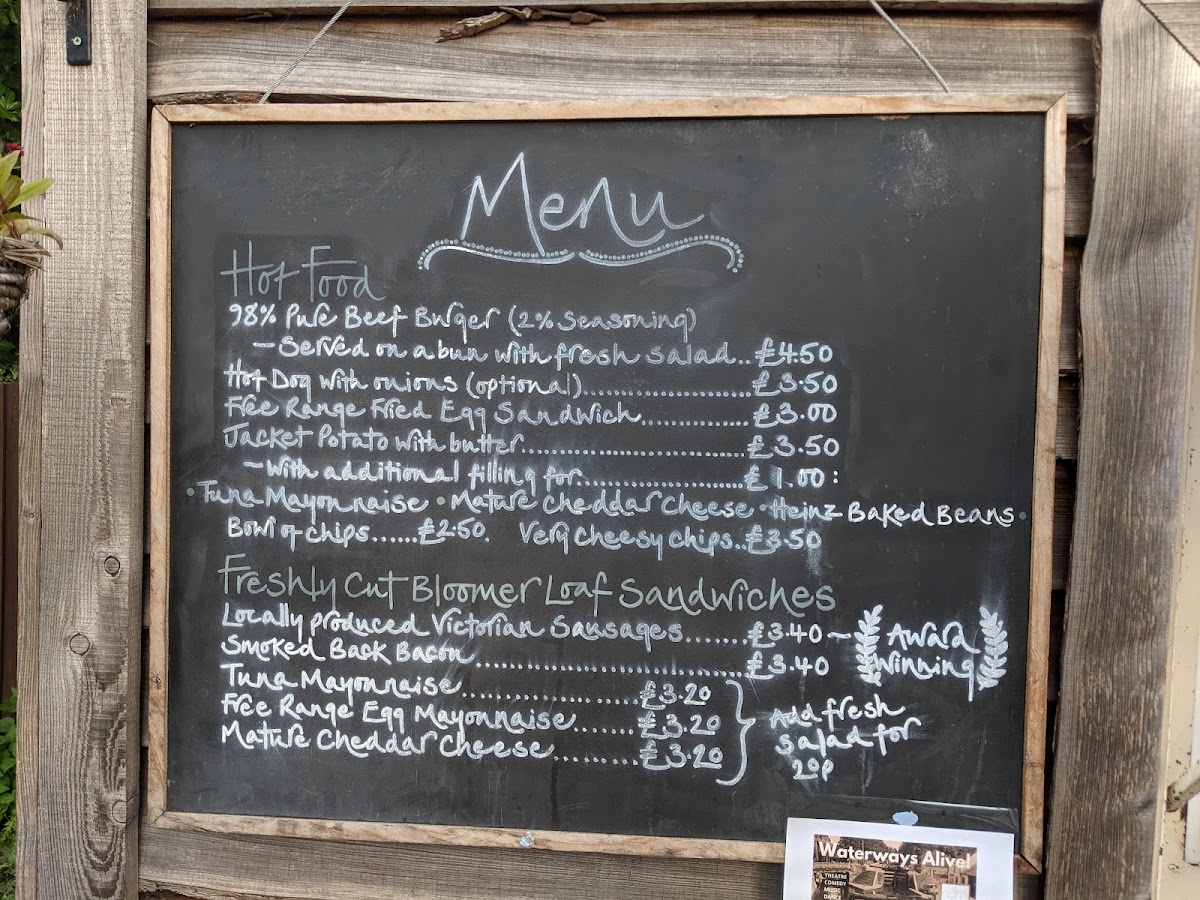 Menu
Hot Food
98% Pure Beef Burger (2% Seasoning)
- Served on a bun with fresh salad.. £4.50
Hot Dog with onions (optional)........................ £3.50
Free Range Fried Egg Sandwich............... £3.00
Jacket Potato with butter................................ £3.50
- With additional filling for........................ £1.00:
• Tuna Mayonnaise • Mature Cheddar Cheese • Heinz Baked Beans •
Bowl of chips...... £2.50. Very Cheesy chips.. £3.50
Freshly Cut Bloomer Loaf Sandwiches
Locally produced Victorian Sausages....... £3.40 ~ Award Winning
Smoked Back Bacon....................................... £3.40
Tuna Mayonnaise......................... £3.20
Free Range Egg Mayonnaise....... £3.20
Mature Cheddar Cheese.......... £3.20
Add fresh
salad for
20p
Waterways Alive!
THEATRE
COMEDY
MUSIC
DANCE